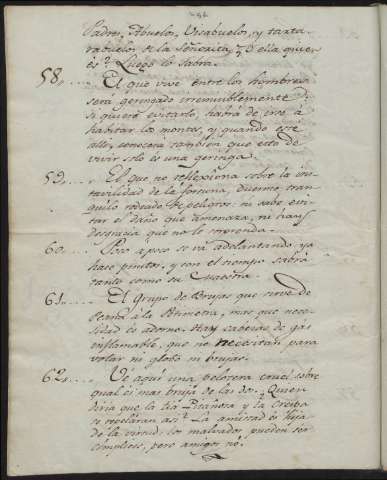 Padres, Abuelos, Visabuelos, y tarta-
rabuelos de la Señorita, y ella quien
es? Luego lo sabra.
58,.... El que vive entre los hombres
sera geringado irremisiblemente: si
si quiere evitarlo, habrá de irse á
habitar los montes, y quando esté
alli, conocerá tambien que esto de
vivir solo es una geringa.
59,.... El que no reflexiona sobre la ins-
tavilidad de la fortuna, duerme tran-
quilo rodeado de peligros: ni sabe evi-
tar el daño que amenaza, ni hay
desgracia que no le sorprenda.
60..... Poco á poco se vá adelantando, ya
hace pinitos, y con el tiempo sabrá
tanto como su Maestra.
61..... El Grupo de Brujas que sirve de
peana á la Petimetra, mas que nece-
sidad es adorno. Hay cabezas de gas
inflamable, que no necesitan para
volar ni globo ni brujas.
62,.... Vé aqui una pelotera cruel sobre
qual es mas bruja de las dos: ¿Quien
diria que la tia Pitañosa y la Crespa
se repelaran asi? La amistad es hija
de la virtud: los malvados pueden ser
complices, pero amigos no.